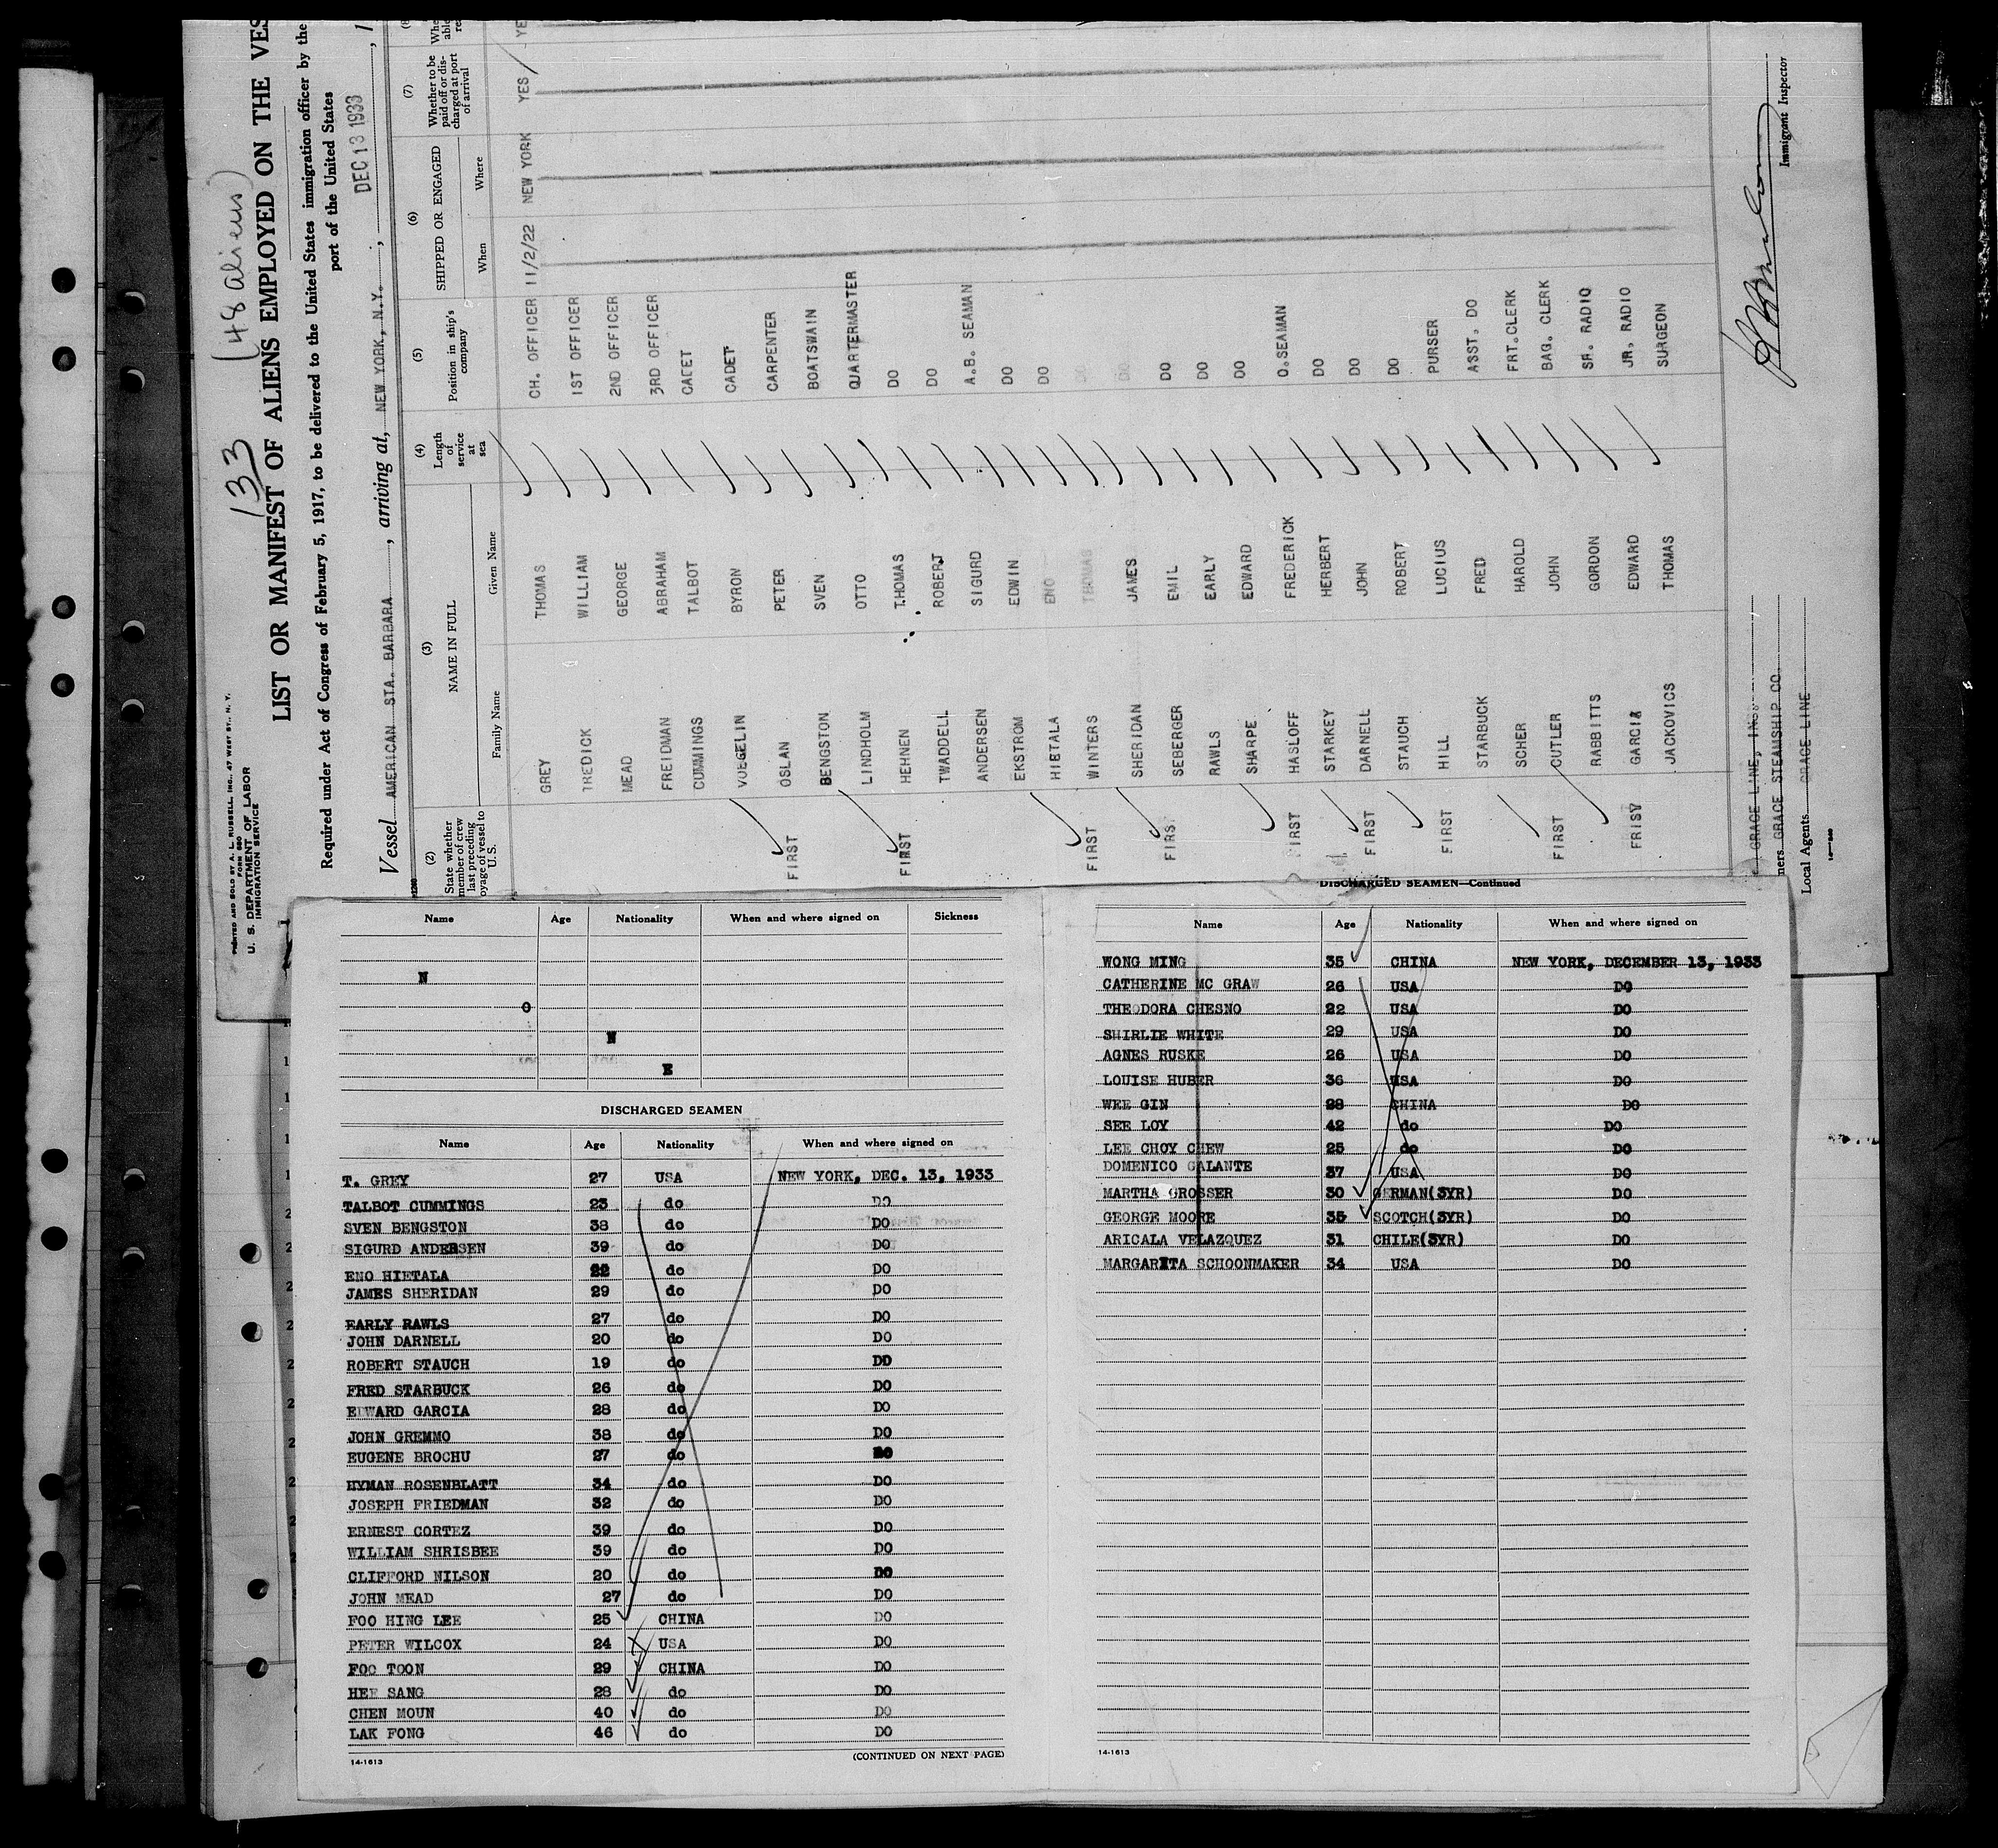 133 (48 aliens)
PRINTED AND SOLD BY A. L. RUSSELL, INC., 47 WEST ST., N. Y.
FORM 680
U. S. DEPARTMENT OF LABOR
IMMIGRATION SERVICE
LIST OR MANIFEST OF ALIENS EMPLOYED ON THE VES
Required under Act of Congress of February 5, 1917, to be delivered to the United States immigration officer by the
port of the United States
Vessel AMERICAN STA. BARBARA, arriving at, NEW YORK, N.Y., DEC 13 1933, 1
(2) (3) (4) (5) (6) (7) (8)
State whether member of crew last preceding oyage of vessel to U.S. NAME IN FULL Length of service at sea Position in ship's company SHIPPED OR ENGAGED Whether to be paid off or discharged at port of arrival
Family Name Given Name When Where
GREY THOMAS CH. OFFICER 11/2/22 NEW YORK YES YE
TREDICK WILLIAM 1ST OFFICER
MEAD GEORGE 2ND OFFICER
FREIDMAN ABRAHAM 3RD OFFICER
CUMMINGS TALBOT CADET
VOEGELIN BYRON CADET
FIRST OSLAN PETER CARPENTER
BENGSTON SVEN BOATSWAIN
LINDHOLM OTTO QUARTERMASTER
FIRST HEHNEN THOMAS DO
TWADDELL ROBERT DO
ANDERSEN SIGURD A.B. SEAMAN
EKSTROM EDWIN DO
HIETALA ENO DO
FIRST WINTERS THOMAS DO
SHERIDAN JAMES DO
FIRST SEBERGER EMIL DO
RAWLS EARLY DO
SHARPE EDWARD DO
FIRST HASLOFF FREDERICK O.SEAMAN
STARKEY HERBERT DO
FIRST DARNELL JOHN DO
STAUCH ROBERT DO
FIRST HILL LUCIUS PURSER
STARBUCK FRED ASST. DO
SCHER HAROLD FRT.CLERK
FIRST CUTLER JOHN BAG. CLERK
RABBITTS GORDON SR. RADIO
FRISY GARCIA EDWARD JR. RADIO
JACKOVICS THOMAS SURGEON
GRACE LINE, INC.
ners GRACE STEAMSHIP CO.
Local Agents GRACE LINE
Immigrant Inspector
Name Age Nationality When and where signed on Sickness
N
O
N
E
DISCHARGED SEAMEN
Name Age Nationality When and where signed on
T. GREY 27 USA NEW YORK, DEC. 13, 1933
TALBOT CUMMINGS 23 do DO
SVEN BENGSTON 38 do DO
SIGURD ANDERSEN 39 do DO
ENO HIETALA 22 do DO
JAMES SHERIDAN 29 do DO
EARLY RAWLS 27 do DO
JOHN DARNELL 20 do DO
ROBERT STAUCH 19 do DO
FRED STARBUCK 26 do DO
EDWARD GARCIA 28 do DO
JOHN GREMMO 38 do DO
EUGENE BROCHU 27 do DO
HYMAN ROSENBLATT 34 do DO
JOSEPH FRIEDMAN 32 do DO
ERNEST CORTEZ 39 do DO
WILLIAM SHRISBEE 39 do DO
CLIFFORD NILSON 20 do DO
JOHN MEAD 27 do DO
FOO HING LEE 25 CHINA DO
PETER WILCOX 24 USA DO
FOO TOON 29 CHINA DO
HEE SANG 28 do DO
CHEN MOUN 40 do DO
LAK FONG 46 do DO
14-1613 (CONTINUED ON NEXT PAGE)
DISCHARGED SEAMEN—Continued
Name Age Nationality When and where signed on
WONG MING 35 CHINA NEW YORK, DECEMBER 13, 1933
CATHERINE MC GRAW 26 USA DO
THEODORA CHESNO 22 USA DO
SHIRLIE WHITE 29 USA DO
AGNES RUSKE 26 USA DO
LOUISE HUBER 36 USA DO
WEE GIN 28 CHINA DO
SEE LOY 42 do DO
LEE CHOY CHEW 25 do DO
DOMENICO GALANTE 37 USA DO
MARTHA GROSSER 30 GERMAN(3YR) DO
GEORGE MOORE 35 SCOTCH(3YR) DO
ARICALA VELAZQUEZ 31 CHILE(3YR) DO
MARGARITA SCHOONMAKER 34 USA DO
14-1613